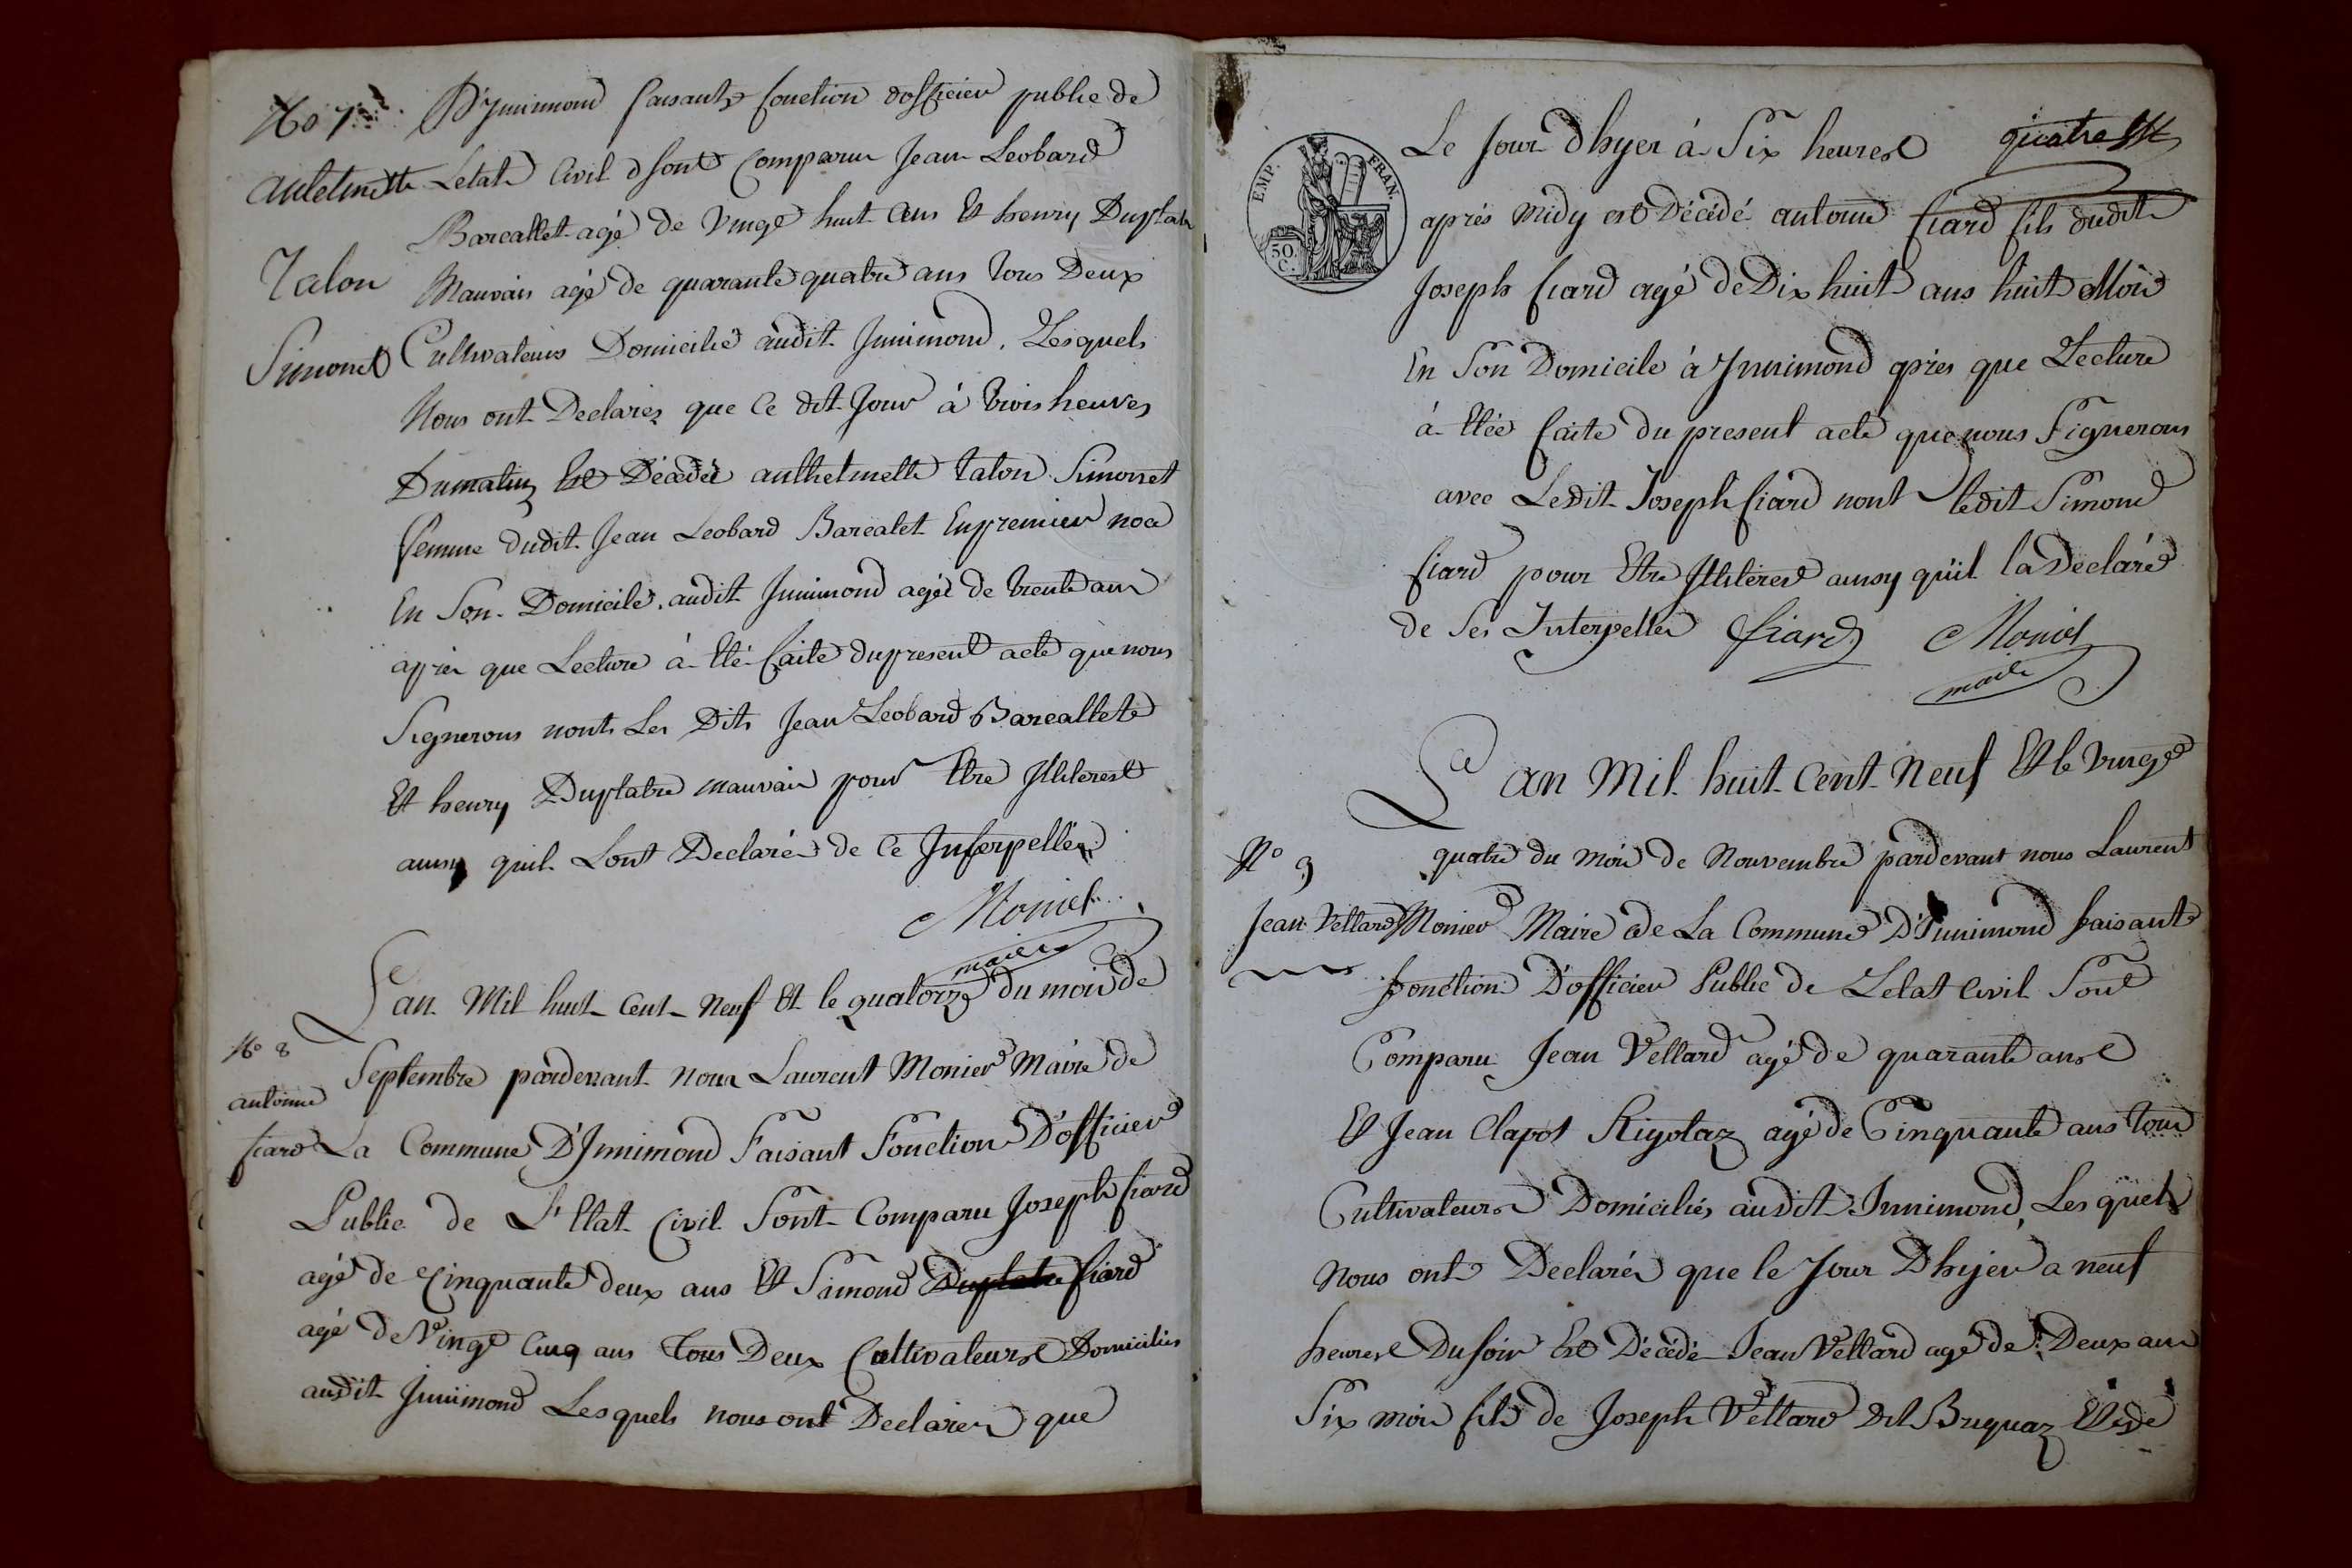 No 7
D'Innimond faisante fonction dofficier public de
autelmette
Letate Civil dsont Comparu Jean Leobard
Barcallet agé de Vingt huit ans Et henry Duplatre
Talon
Mauvais agé de quarante quatre ans tous Deux
Simonet
Cultivateurs Domicilié audit Innimond, Lesquels
Nous ont Declarés que Ce dit Jour à trois heures
Dumatin Est Décedée anthelmette talon Simonet
femme dudit Jean Leobard Barcalet Enpremier noce
En Son Domicile audit Innimond agée de trente ans
après que Lecture à Eté faite dupresent acte que nous
Signerons nont Les Dits Jean Leobard Barcallete
Et henry Duplatre mauvais pour Etre Illiterest
ainsy quil Lont Declarés de Ce Interpeller
Monier
maire
L'an Mil huit Cent Neuf Et le quatorze du mois de
No 8
Septembre pardevant nous Laurent Monier Maire de
antoine
fiard
La Commune D'Innimond Faisant Fonction D'officier
Public de L'Etat Civil Sont Comparu Joseph fiard
agé de Cinquante deux ans Et Simond Duplatre fiard
agé de Vingt Cinq ans tous Deux Cultivateurs Domiciliés
audit Innimond Lesquels nous ont Declarés que
quatre
EMP. FRAN.
50 C.
Le Jour Dhyer à Six heures
après Midy est Décédé antoine fiard fils dudit
Joseph fiard agé de Dix huit ans huit Mois
En Son Domicile à Innimond après que Lecture
à Etée faite du present acte que nous Signerons
avec Ledit Joseph fiard nont ledit Simond
fiard pour Etre Illiterest ainsy qu'il la Declaré
de Ses Interpeller fiard Monier
maire
L'an Mil huit Cent Neuf Et le Vingt
No 9
quatre du mois de Nouvembre pardevant nous Laurent
Jean Vellard
Monier Maire de La Commune D'Innimond faisante
fonction D'officier Public de Letat Civil Sont
Comparu Jean Vellard agé de quarante ans
Et Jean Clapot Rigolaz agé de Cinquante ans tous
Cultivateurs Domiciliés audit Innimond, Lesquels
Nous ont Declarés que le Jour Dhyer a neuf
heures Dusoir Est Décédé Jean Vellard agé de Deux ans
Six mois fils de Joseph Vellard dit Buquaz Et de